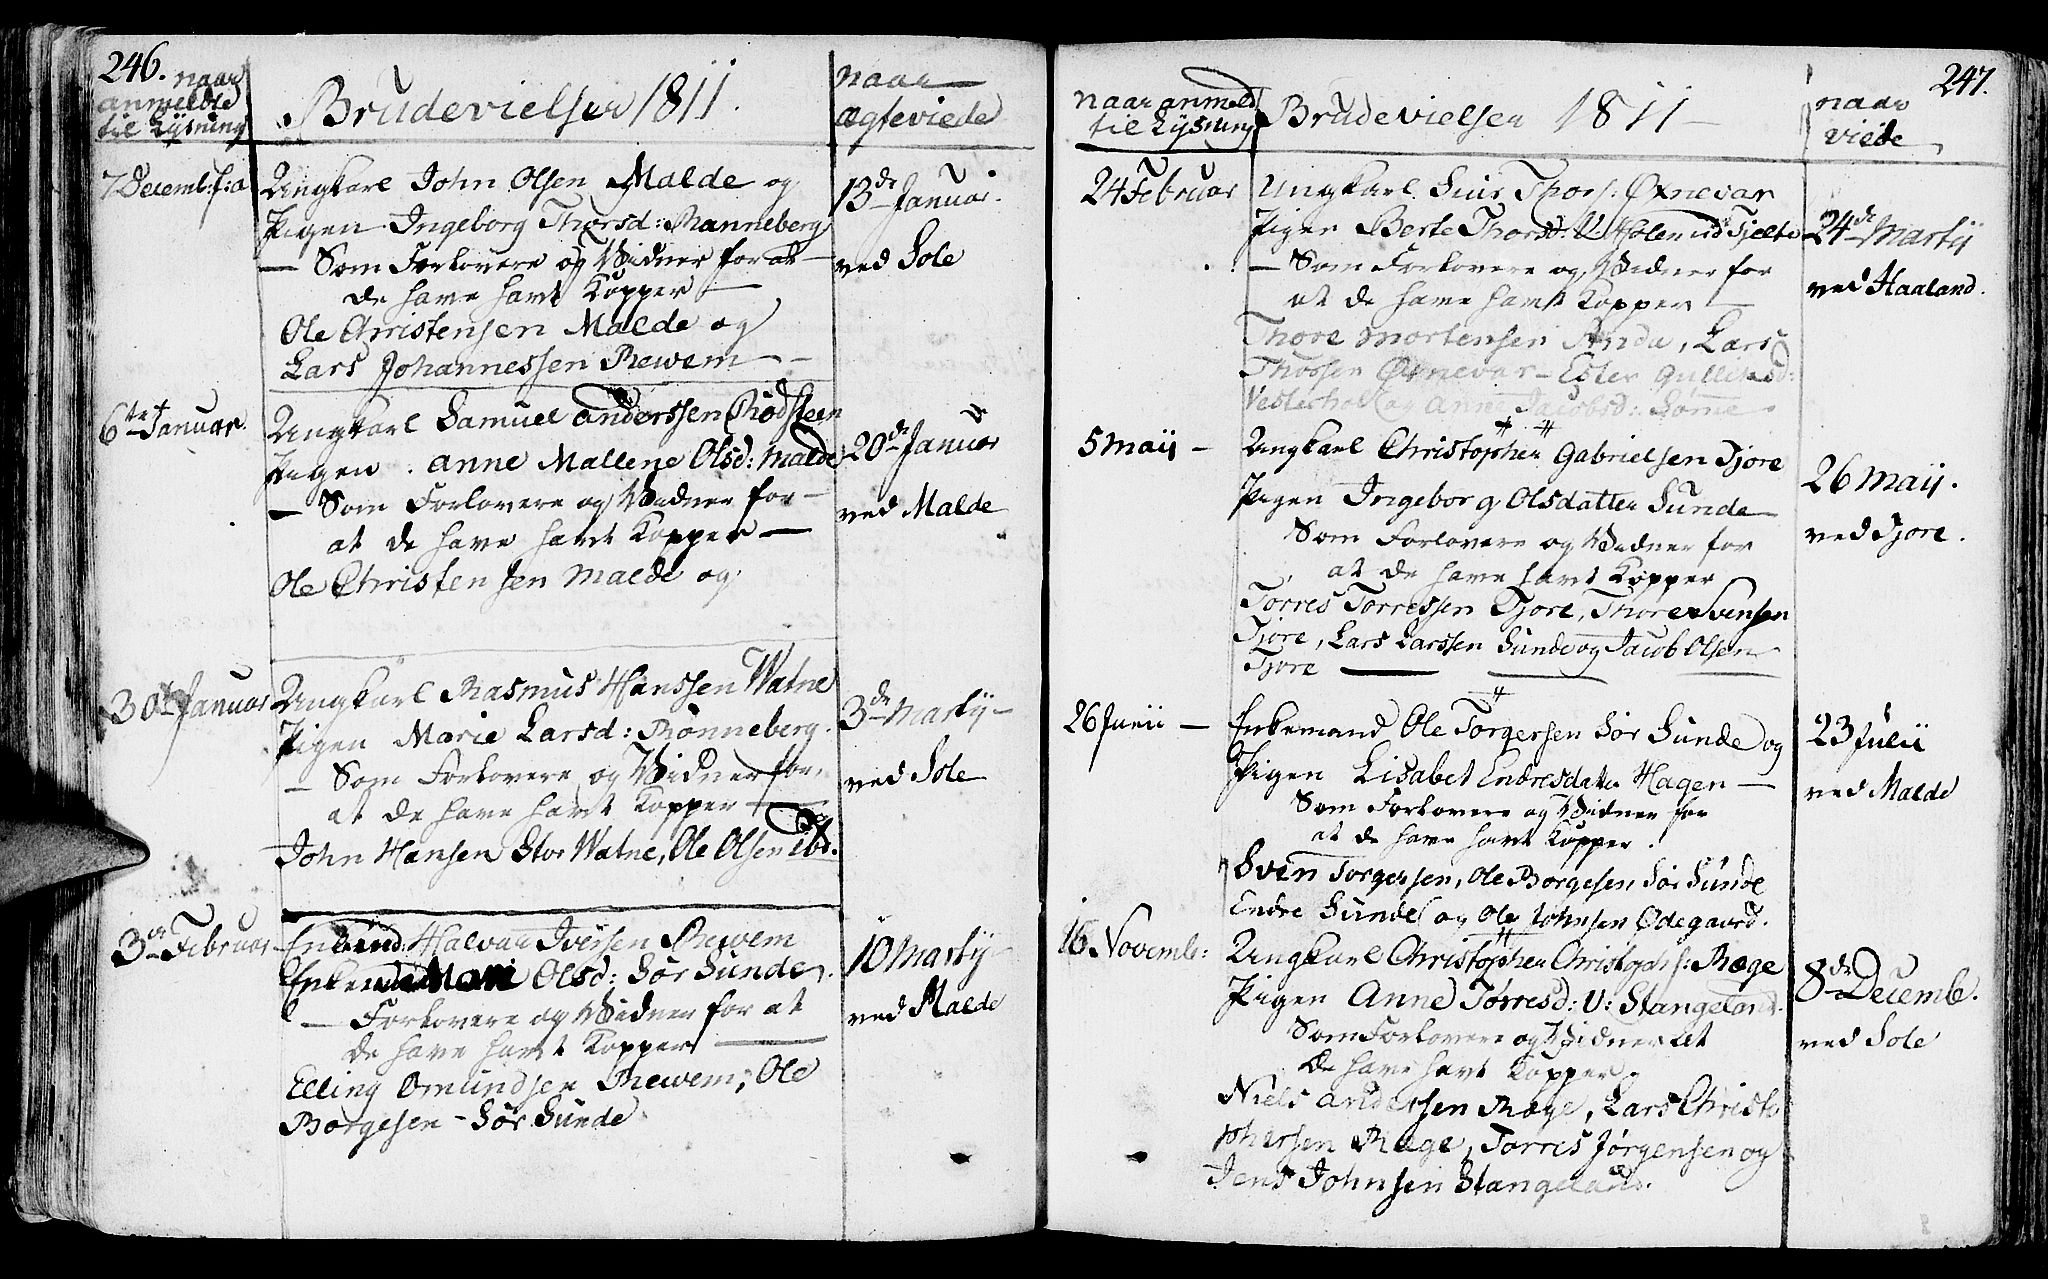 246.
naar
anmeldte
til Lysning
Brudevielser 1811.
naar
ægteviede
7 Decemb: f: a
Ungkarl John Olsen Malde og
Pigen Ingeborg Thorsd: Ranneberg
— Som Forlovere og Vidner for at —
de have havt Kopper —
Ole Christensen Malde og
Lars Johannessen Rewem —
13de Januar.
ved Sole
6te Januar.
Ungkarl Samuel Anderssen Rødsteen
Pigen . Anne Mallene Olsd: Malde
— Som Forlovere og Vidner for —
at de have havt Kopper —
Ole Christensen Malde og
20de Januar
ved Malde
30te Januar
Ungkarl Rasmus Hanssen Watne
Pigen Marie Larsd: Rønneberg.
— Som Forlovere og Vidner for
at de have havt Kopper —
John Hansen Stor Watne, Ole Olsen ibd.
3de Martij —
ved Sole
3de Februar
Enkemd: Halvar Iversen Rewem
Enken Mari Olsd: Sør Sunde.
— Forlovere og Vidner for at
de have havt Kopper —
Elling Omundsen Rewem, Ole
Borgesen — Sør Sunde
10 Martij —
ved Malde
247.
naar anmeld
til Lysning
Brudevielser 1811 —
naar
viede
24 Februar
Ungkarl Siur Thors: Øxnevar
Pigen Berte Thorsd: V. Holen ved Tjelte
— Som Forlovere og Vidner for
at de have havt Kopper —
Thore Mortensen Anda, Lars
Thorsen Øxnevar — Ester Gulliksd:
Vesterhol og Anne Jacobsd: Sømme
24de Martij
ved Haaland.
5 Maij —
Ungkarl Christopher Gabrielsen Tjore
Pigen Ingeborg Olsdatter Sunde
Som Forlovere og Vidner for
at de have havt Kopper
Torres Torressen Tjore, Thore Svensen
Tjore, Lars Larssen Sunde og Jacob Olsen
Tjore —
26 Maij.
ved Tjore.
26 Junii —
Enkemand Ole Torgersen Sør Sunde og
Pigen Lisabet Endresdatter Hagen —
Som Forlovere og Vidner for
at de have havt Kopper.
Sven Torgersen, Ole Borgesen Sør Sunde
Endre Sunde og Ole Johnsen Ødegaard.
23 Julii
ved Malde
16 Novemb:
Ungkarl Christopher Christophs: Ræge
Pigen Anne Torresd: V: Stangeland.
Som Forlovere og Vidner at
De have havt Kopper
Niels Andersen Ræge, Lars Christo
phersen Ræge, Torres Jørgensen og
Jens Johnsen Stangeland.
8de Decemb.
ved Sole